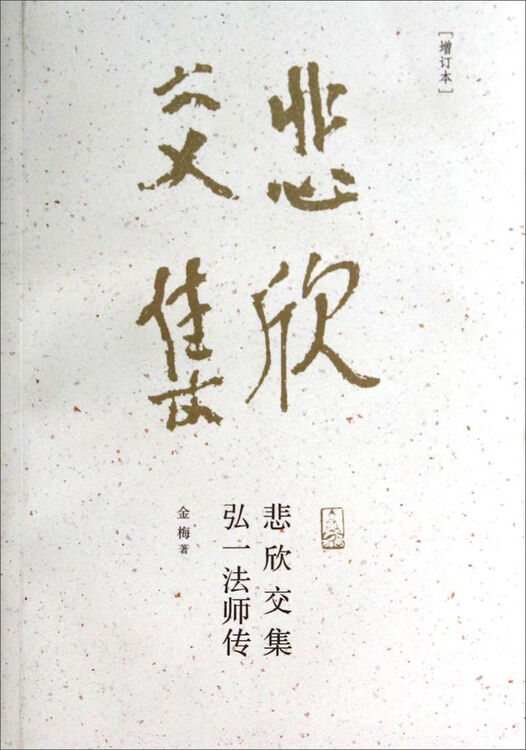 [增订本]
悲欣
交集
悲欣交集
弘一法师传
金梅 著